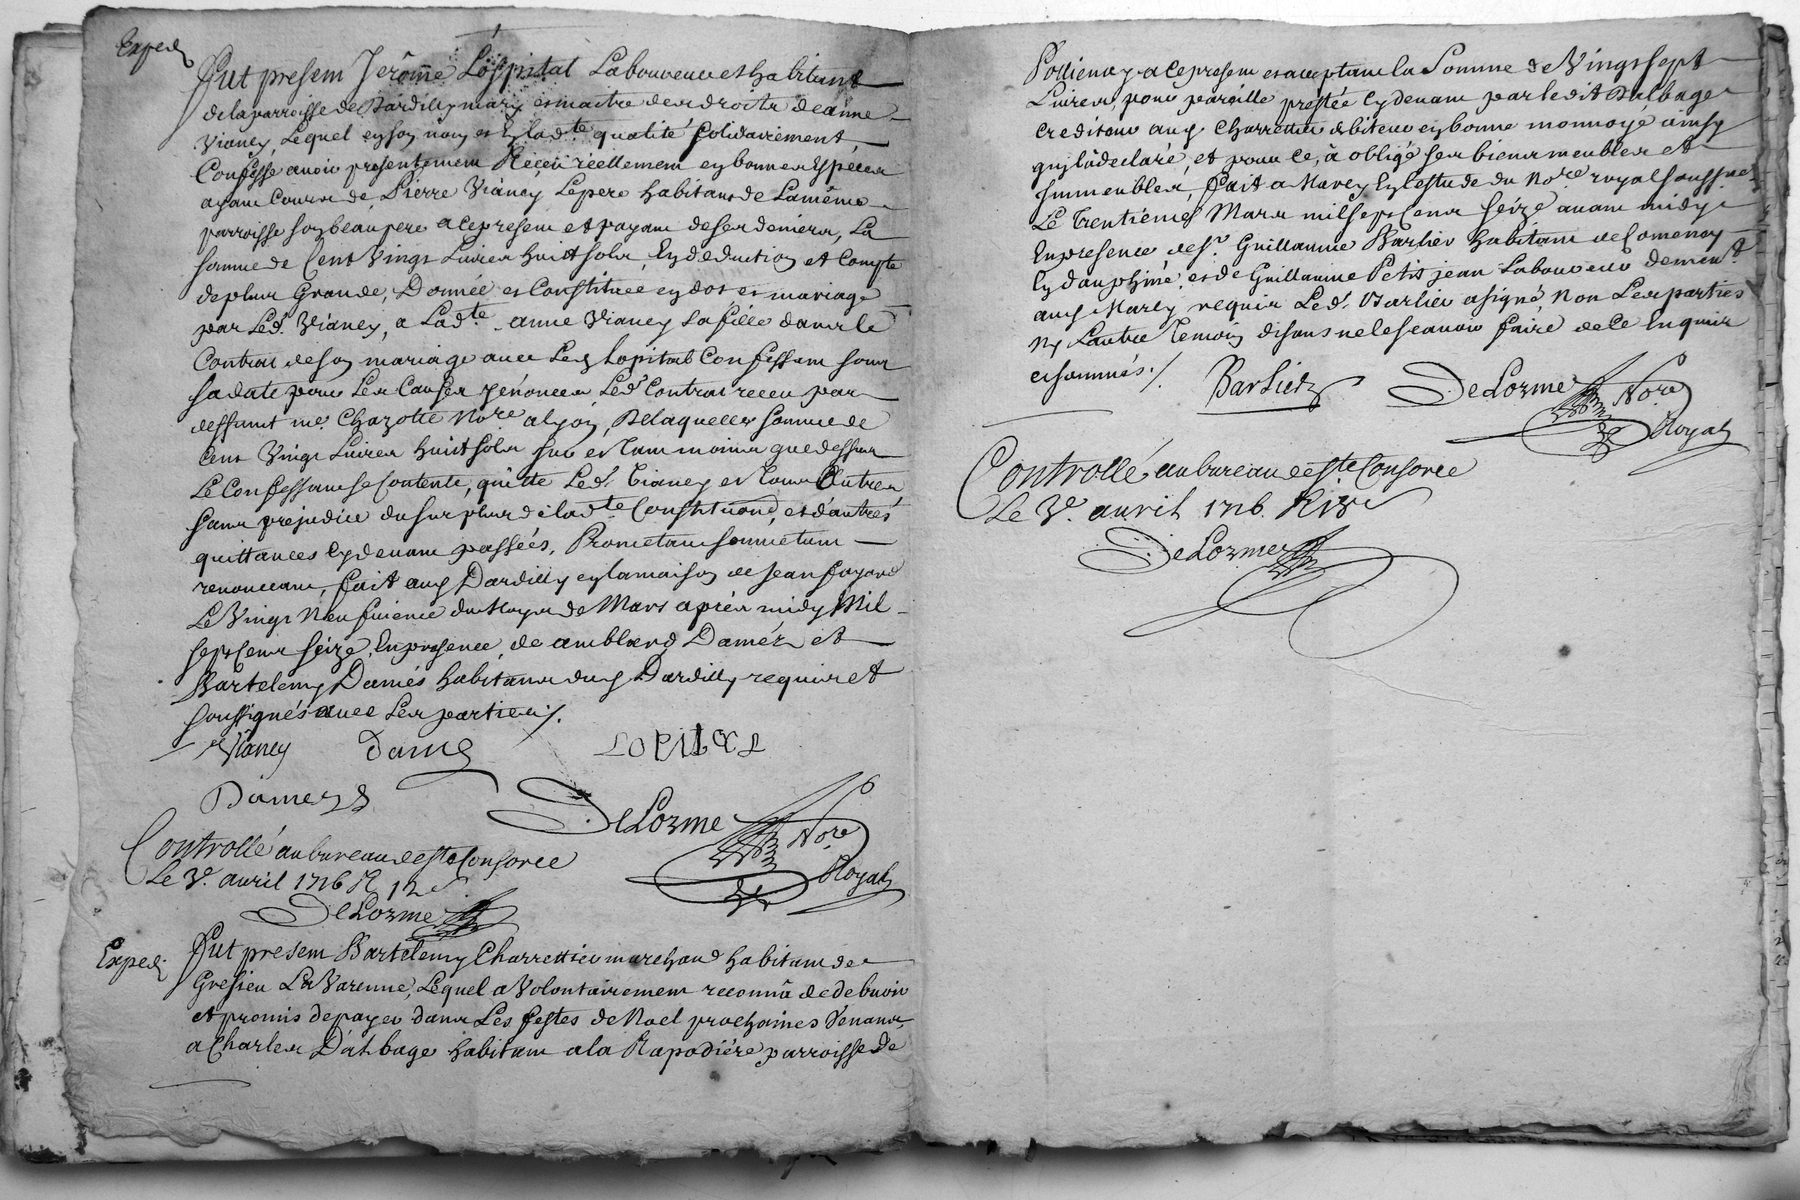 Exped
Fut presem Jerôme Lospital Laboureur et habitant
de la parroisse de Dardilly mary et maitre des droits de anne
Vianey, Lequel en son nom et en lad.te qualité solidairement
Confesse avoir presentement Receu réellement en bonnes Especes
ayam cours de Pierre Vianey Lepere habitant de La même
parroisse son beau pere a ce presem et payam de ses deniers, La
somme de Cent Vingt Livres huit sols, En deduction et Compte
de plus Grande, Donnée et Constituée en dot et mariage
par Led. Vianey, a Lad.te anne Vianey sa fille dans le
Contrat de son mariage avec Led Lopital Confessam sous
sa date pour Les Causes y énoncées Led. Contrat receu par
deffunt me. Chazotte No.re a lyon, De laquelle somme de
Cent Vingt Livres huit sols sur et tant moins que dessus
Le Confessam se Contente, quitte Led. Vianey et tous Autres
sans prejudice du surplus de lad.te Constituon, et d'autres
quittances Cy devam passées, Prometam soumetam
renonceam, fait aud Dardilly en la maison de Jean fayard
Le Vingt Neufuieme du Moys de Mars apres midy Mil
sept Cent seize, En presence de amblard Damés et
Bartelemy Damés habitans dud Dardilly requis et
soussignés avec Les parties /.
Vianey Damé LOPITAL
Damez
DeLorme No.re Royal
Controllé au bureau de s.te Consorce
Le 3e. avril 1716 R 12 s
DeLorme
Exped.
Fut presem Bartelemy Charrettier marchand habitam de
Gresieu La Varenne, Lequel a Volontairemem reconnû de debvoir
et promis de payer dans Les festes de Noel prochaines Venans,
a Charles Dalbage habitam a la Rapodiére parroisse de
Pollienay a ce presem et acceptam la Somme de Vingt sept
Livres, pour pareille prestée Cy devam par ledit Dalbage
Crediteur aud Charrettier debiteur en bonne monnoye ainsy
qu'il a declaré, et pour ce, à obligé ses biens meubles et
Immeubles, fait a Marcy En Lestude du No.re royal soussigné
Le trentiéme Mars mil sept Cent seize avam midy
En presence de s.r Guillaume Barlier habitam de
En dauphiné, et de Guillaume Petit jean Laboureur demeur.t
aud Marcy requis Led. Barlier a signé Non Les parties
Ny Lautre temoin disans ne le scavoir faire de Ce Enquis
et sommés /.
Barlier DeLorme No.re
Royal
Controllé au bureau de s.te Consorce
Le 3e. avril 1716. R
DeLorme